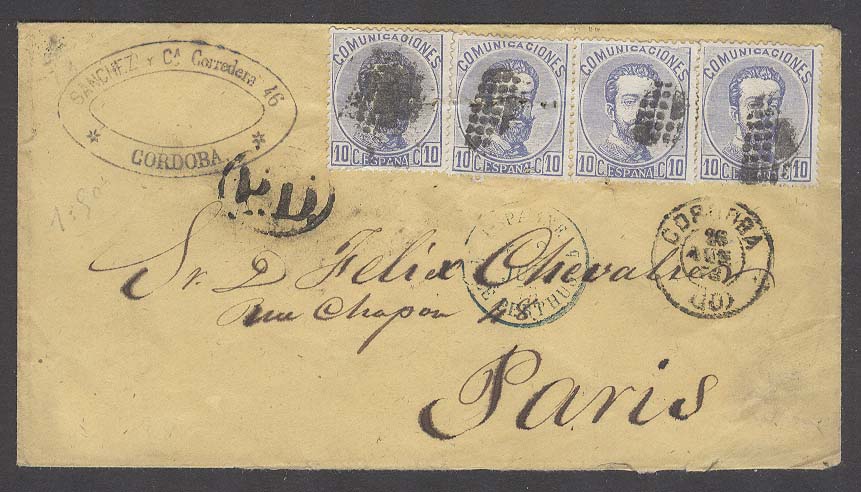 SANCHEZ Y Cª Corredera 46
CORDOBA
COMUNICACIONES
10 C. ESPAÑA C. 10
COMUNICACIONES
10 C. ESPAÑA C. 10
COMUNICACIONES
10 C. ESPAÑA C. 10
COMUNICACIONES
10 C. ESPAÑA C. 10
P.D.
ESPAGNE
CORDOBA
26
(10)
Sr. D Felix Chevalier
Rue Chapon 48
Paris